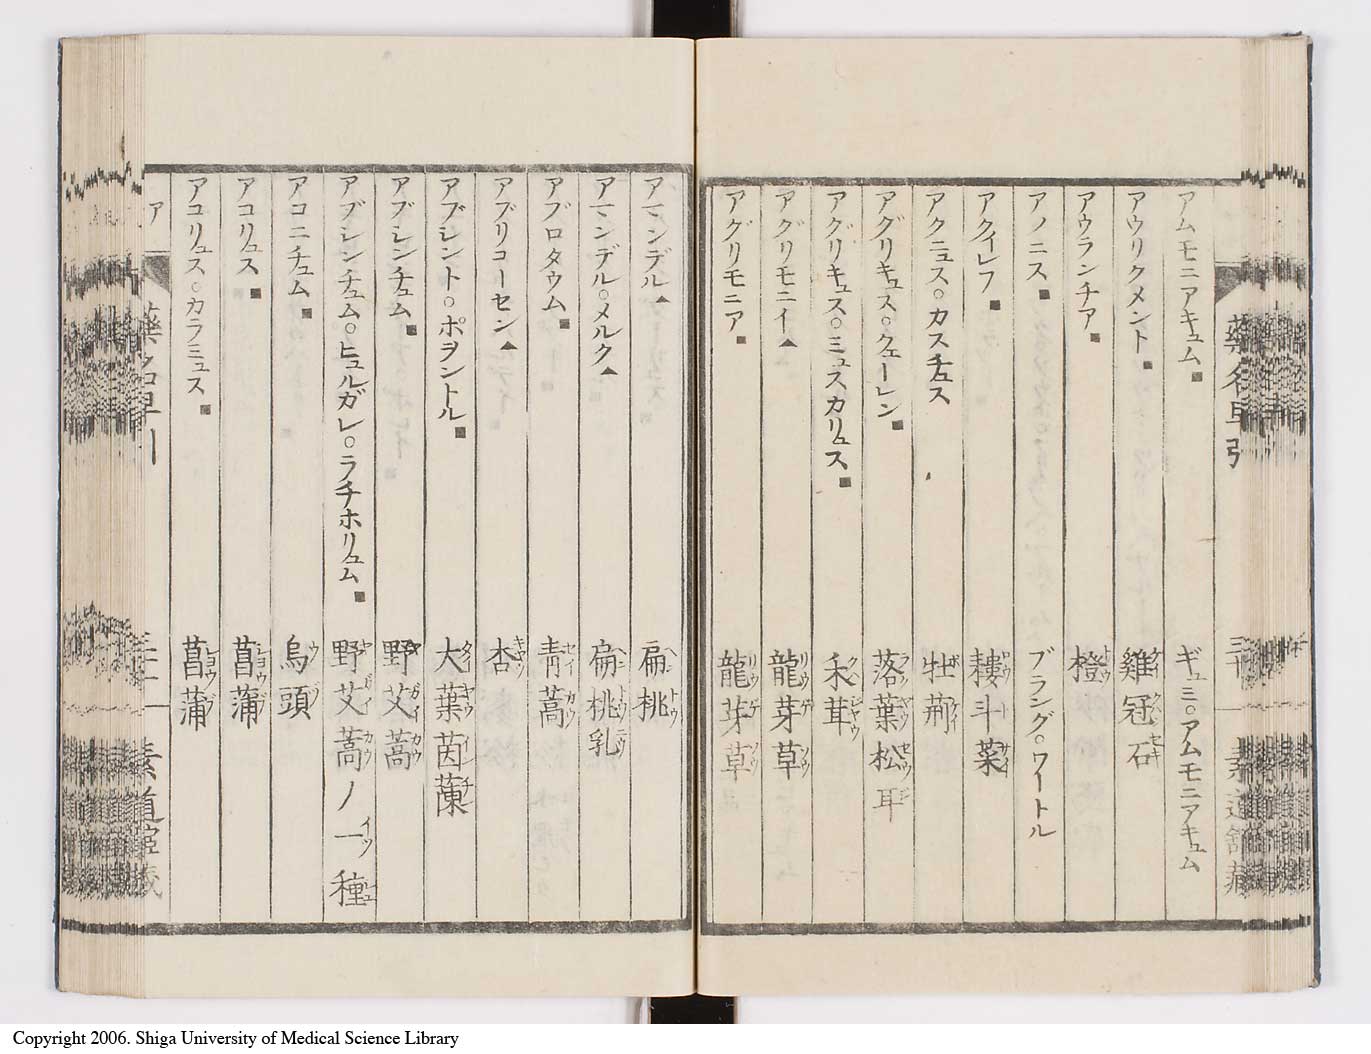 藥名早引
アムモニアキュム■ ギュミ○アムモニアキュム
アウリクメント■ 雞冠石
アウランチア■ 橙
アノニス■ ブラング○ワートル
アクイレフ■ 耬斗菜
アクニュス○カスチュス 牡荊
アグリキュス○クェーレン■ 落葉松耳
アグリキュス○ミュスカリュス■
アグリモニイ▲ 龍芽草
アグリモニア■ 龍芽草
アマンデル▲ 扁桃
アマンデル○メルク▲ 扁桃乳
アブロタウム■ 青蒿
アブリコーセン▲ 杏
アブレント○ポヲントル■ 大葉茵蔯
アブレンチュム■ 野艾蒿
アブレンチュム○ヒュルガレ○ラチホリュム■ 野艾蒿ノ一種
アコニチュム■ 烏頭
アコリュス■ 菖蒲
アコリュス○カラミュス■ 菖蒲
ア 藥名早引
Copyright 2006. Shiga University of Medical Science Library